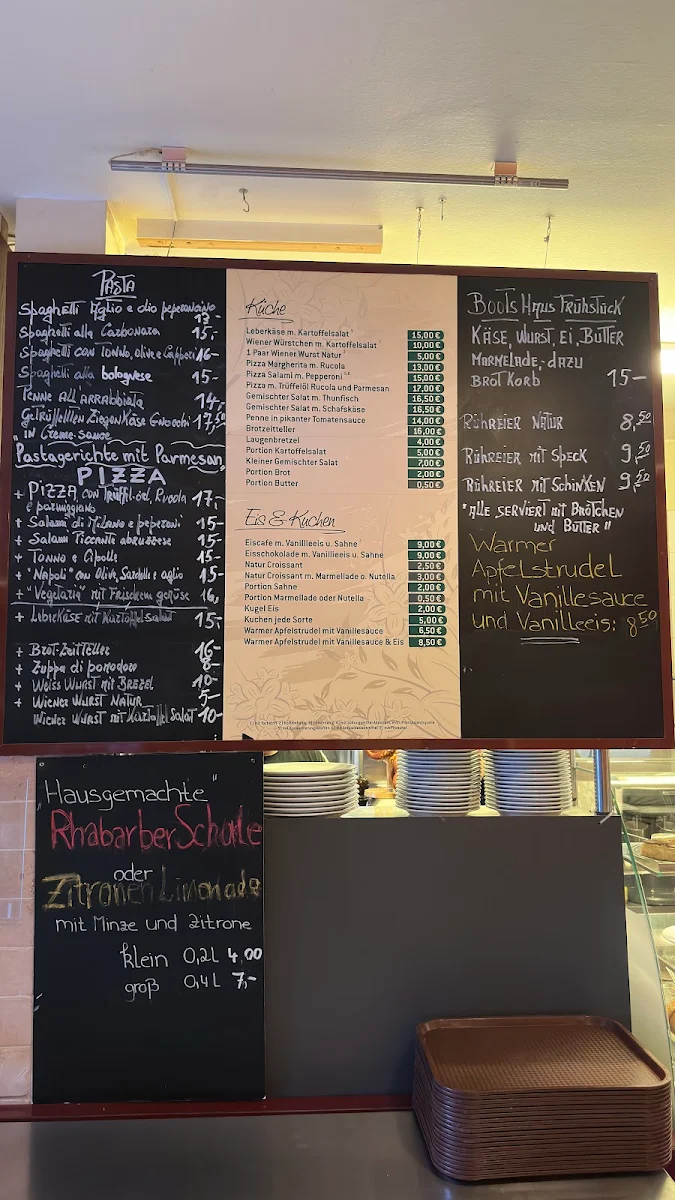 PASTA
Spaghetti Aglio e olio peperoncino
13-
Spaghetti alla Carbonara 15,-
Spaghetti con Tonno, olive e Capperi 16-
Spaghetti alla bolognese 15-
Penne all'arrabbiata 14,-
Getrüffelten Ziegenkäse Gnocchi 17,50
in Creme sauce
"Pastagerichte mit Parmesan"
PIZZA
+ PIZZA con Trüffel oel, Rucola 17,-
e parmiggiano
+ Salami di Milano e peperoni 15-
+ Salami Piccante abruzzese 15-
+ Tonno e Cipolle 15-
+ "Napoli" con Olive, Sardelle e aglio 15-
+ "Vegetaria" mit Frischem gemüse 16,
+ Leberkäse mit Kartoffelsalat 15,-
+ Brot-Zeitteller 16-
+ Zuppa di pomodoro 8-
+ Weiss Wurst mit Brezel 10-
+ Wiener Wurst Natur 5-
Wiener Wurst mit Kartoffel Salat 10-
Küche
Leberkäse m. Kartoffelsalat 15,00 €
Wiener Würstchen m. Kartoffelsalat 10,00 €
1 Paar Wiener Wurst Natur 5,00 €
Pizza Margherita m. Rucola 13,00 €
Pizza Salami m. Pepperoni 15,00 €
Pizza m. Trüffelöl Rucola und Parmesan 17,00 €
Gemischter Salat m. Thunfisch 16,50 €
Gemischter Salat m. Schafskäse 16,50 €
Penne in pikanter Tomatensauce 14,00 €
Brotzeitteller 16,00 €
Laugenbretzel 4,00 €
Portion Kartoffelsalat 5,00 €
Kleiner Gemischter Salat 7,00 €
Portion Brot 2,00 €
Portion Butter 0,50 €
Eis & Kuchen
Eiscafe m. Vanilleeis u. Sahne 9,00 €
Eisschokolade m. Vanilleeis u. Sahne 9,00 €
Natur Croissant 2,50 €
Natur Croissant m. Marmelade o. Nutella 3,00 €
Portion Sahne 2,00 €
Portion Marmelade oder Nutella 0,50 €
Kugel Eis 2,00 €
Kuchen jede Sorte 5,00 €
Warmer Apfelstrudel mit Vanillesauce 6,50 €
Warmer Apfelstrudel mit Vanillesauce & Eis 8,50 €
Boots Haus Frühstück
Käse, Wurst, Ei, Butter
Marmelade,- dazu
Brotkorb 15-
Rühreier Natur 8,50
Rühreier mit Speck 9,50
Rühreier mit Schinken 9,50
"Alle serviert mit Brötchen
und Butter"
Warmer
Apfelstrudel
mit Vanillesauce
und Vanilleeis: 8,50
"Hausgemachte"
RhabarberSchorle
oder
ZitronenLimonade
mit Minze und Zitrone
klein 0,2L 4,00
groß 0,4L 7,-